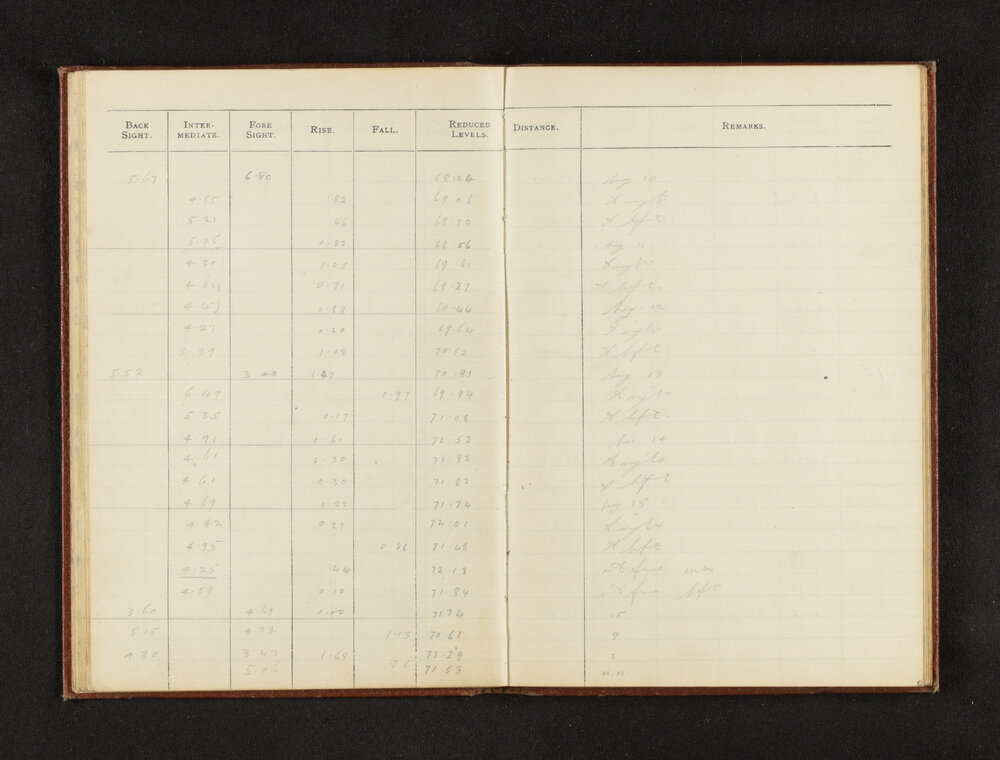 BACK SIGHT. INTER-MEDIATE. FORE SIGHT. RISE. FALL. REDUCED LEVELS. DISTANCE. REMARKS.
5.67 6.80 68.24 Peg 10
4.85 .82 69.06 A right
5.21 .46 68.70 A left
5.35 0.32 68.56 Peg 11
4.30 1.05 69.61 A right
4.64 0.71 69.27 A left
4.47 0.88 69.44 Peg 12
4.27 0.20 69.64 A right
3.39 1.08 70.52 A left
5.52 3.00 1.47 70.91 Peg 13
6.49 0.97 69.94 A right
5.35 0.17 71.08 A left
4.91 1.61 71.52 14
4.61 0.30 71.82 A right
4.61 0.30 71.82 A left
4.69 0.22 71.74 Peg 15
4.42 0.27 72.01 A right
4.95 0.26 71.48 A left
4.25 .44 72.18
4.59 0.10 71.84 left
3.60 4.69 0.00 71 74 15
5.15 4.73 1.13 70.61 9
4.30 3.47 1.68 72.29 3
5.06 .76 71 53 M.H.